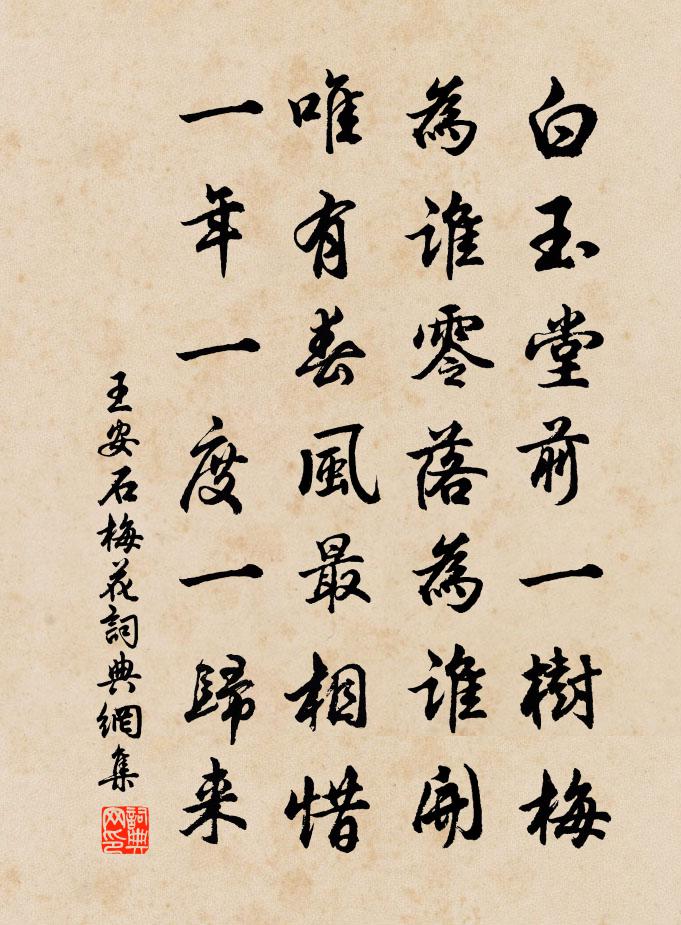 白玉堂前一樹梅
為誰零落為誰開
唯有春風最相惜
一年一度一歸来
王安石梅花詞典網集
詞典网印